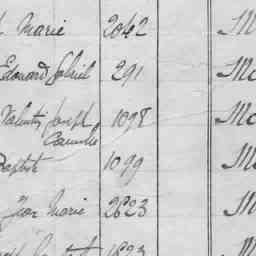 Marie 2042 M
Edouard Gabriel 291 Mo
Valentin Joseph 1098 Mo
Camille
Baptiste 1099 M
Jean Marie 2623 M
1823 M